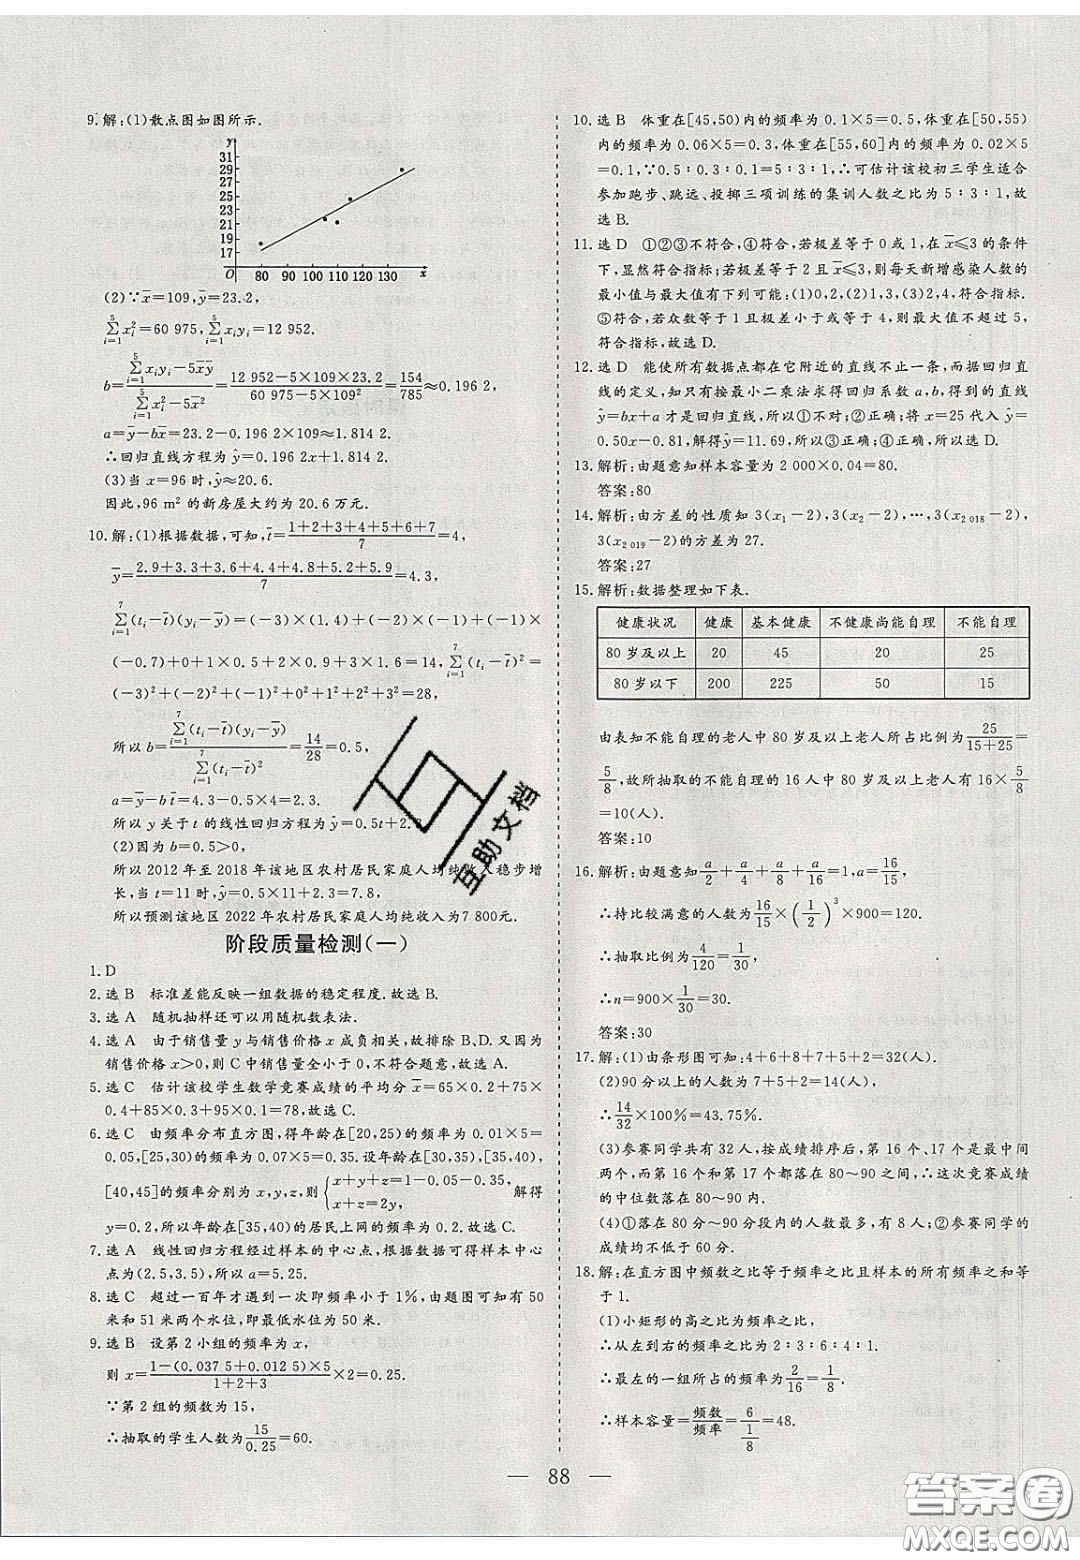 9.解:(1)散点图如图所示.
y
31
29
27
25
23
21
19
17
O 80 90 100 110 120 130 x
(2)∵x̄=109,ȳ=23.2,
∑(i=1→5)xᵢ²=60 975,∑(i=1→5)xᵢyᵢ=12 952.
b=(∑(i=1→5)xᵢyᵢ-5x̄ȳ)/(∑(i=1→5)xᵢ²-5x̄²)=(12 952-5×109×23.2)/(60 975-5×109²)=154/785≈0.196 2,
a=ȳ-bx̄=23.2-0.196 2×109≈1.814 2.
∴回归直线方程为ŷ=0.196 2x+1.814 2.
(3)当 x=96 时,ŷ≈20.6.
因此,96 m²的新房屋大约为 20.6 万元.
10.解:(1)根据数据,可知,t̄=(1+2+3+4+5+6+7)/7=4,
ȳ=(2.9+3.3+3.6+4.4+4.8+5.2+5.9)/7=4.3,
∑(i=1→7)(tᵢ-t̄)(yᵢ-ȳ)=(-3)×(1.4)+(-2)×(-1)+(-1)×
(-0.7)+0+1×0.5+2×0.9+3×1.6=14,∑(i=1→7)(tᵢ-t̄)²=
(-3)²+(-2)²+(-1)²+0²+1²+2²+3²=28,
所以 b=(∑(i=1→7)(tᵢ-t̄)(yᵢ-ȳ))/(∑(i=1→7)(tᵢ-t̄)²)=14/28=0.5,
a=ȳ-bt̄=4.3-0.5×4=2.3,
所以 y 关于 t 的线性回归方程为 ŷ=0.5t+2.3.
(2)因为 b=0.5>0,
所以 2012 年至 2018 年该地区农村居民家庭人均纯收入稳步增
长,当 t=11 时,ŷ=0.5×11+2.3=7.8,
所以预测该地区 2022 年农村居民家庭人均纯收入为 7 800元.
阶段质量检测(一)
1.D
2.选 B 标准差能反映一组数据的稳定程度.故选 B.
3.选 A 随机抽样还可以用随机数表法.
4.选 A 由于销售量 y 与销售价格 x 成负相关,故排除 B、D.又因为
销售价格 x>0,则 C 中销售量全小于 0,不符合题意,故选 A.
5.选 C 估计该校学生数学竞赛成绩的平均分x̄=65×0.2+75×
0.4+85×0.3+95×0.1=78,故选 C.
6.选 C 由频率分布直方图,得年龄在[20,25)的频率为 0.01×5=
0.05,[25,30)的频率为 0.07×5=0.35.设年龄在[30,35),[35,40),
[40,45]的频率分别为 x,y,z,则{x+y+z=1-0.05-0.35, x+z=2y, 解得
y=0.2,所以年龄在[35,40)的居民上网的频率为 0.2.故选 C.
7.选 A 线性回归方程经过样本的中心点,根据数据可得样本中心
点为(2.5,3.5),所以 a=5.25.
8.选 C 超过一百年才遇到一次即频率小于 1%,由题图可知有 50
米和 51 米两个水位,即最低水位为 50 米.
9.选 B 设第 2 小组的频率为 x,
则 x=(1-(0.037 5+0.012 5)×5)/(1+2+3)×2=0.25.
∵第 2 组的频数为 15,
∴抽取的学生人数为15/0.25=60.
10.选 B 体重在[45,50)内的频率为 0.1×5=0.5,体重在[50,55)
内的频率为 0.06×5=0.3,体重在[55,60]内的频率为 0.02×5
=0.1,∵0.5∶0.3∶0.1=5∶3∶1,∴可估计该校初三学生适合
参加跑步、跳远、投掷三项训练的集训人数之比为 5∶3∶1,故
选 B.
11.选 D ①②③不符合,④符合,若极差等于 0 或 1,在x̄≤3 的条件
下,显然符合指标;若极差等于 2 且x̄≤3,则每天新增感染人数的
最小值与最大值有下列可能:(1)0,2,(2)1,3,(3)2,4,符合指标.
⑤符合,若众数等于 1 且极差小于或等于 4,则最大值不超过 5,
符合指标,故选 D.
12.选 D 能使所有数据点都在它附近的直线不止一条,而据回归直
线的定义,知只有按最小二乘法求得回归系数 a,b,得到的直线
ŷ=bx+a 才是回归直线,所以①不对;②正确;将 x=25 代入 ŷ=
0.50x-0.81,解得ŷ=11.69,所以③正确;④正确,所以选 D.
13.解析:由题意知样本容量为 2 000×0.04=80.
答案:80
14.解析:由方差的性质知 3(x₁-2),3(x₂-2),…,3(x₂ ₀₁₈-2),
3(x₂ ₀₁₉-2)的方差为 27.
答案:27
15.解析:数据整理如下表.
健康状况 健康 基本健康 不健康尚能自理 不能自理
80 岁及以上 20 45 20 25
80 岁以下 200 225 50 15
由表知不能自理的老人中 80 岁及以上老人所占比例为25/(15+25)=
5/8,故所抽取的不能自理的 16 人中 80 岁及以上老人有 16×5/8
=10(人).
答案:10
16.解析:由题意知a/2+a/4+a/8+a/16=1,a=16/15,
∴持比较满意的人数为16/15×(1/2)³×900=120.
∴抽取比例为4/120=1/30,
∴n=900×1/30=30.
答案:30
17.解:(1)由条形图可知:4+6+8+7+5+2=32(人).
(2)90 分以上的人数为 7+5+2=14(人),
∴14/32×100%=43.75%.
(3)参赛同学共有 32 人,按成绩排序后,第 16 个、17 个是最中间
两个,而第 16 个和第 17 个都落在 80~90 之间,∴这次竞赛成绩
的中位数落在 80~90 内.
(4)①落在 80 分~90 分段内的人数最多,有 8 人;②参赛同学的
成绩均不低于 60 分.
18.解:在直方图中频数之比等于频率之比且样本的所有频率之和等
于 1.
(1)小矩形的高之比为频率之比,
∴从左到右的频率之比为 2∶3∶6∶4∶1.
∴最左的一组所占的频率为2/16=1/8.
∴样本容量=频数/频率=6/(1/8)=48.
88
互助文档
答案圈
MXQE.COM